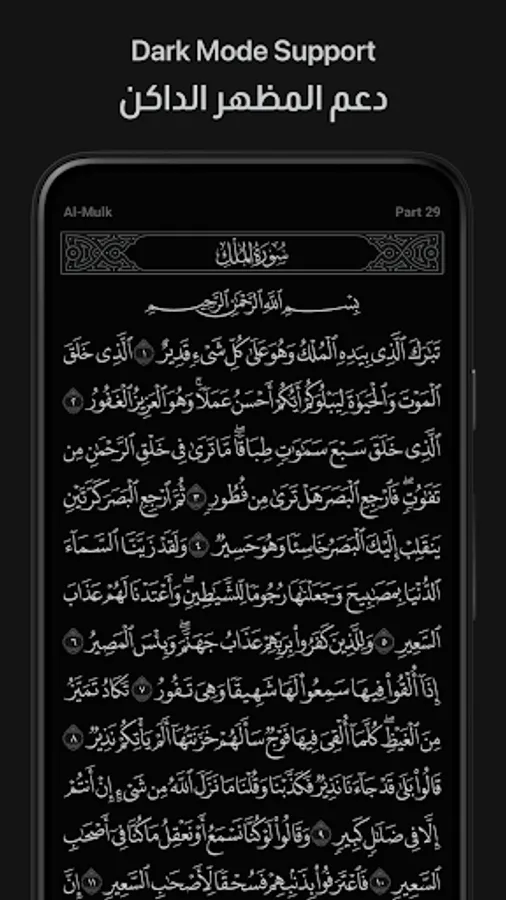 Dark Mode Support
دعم المظهر الداكن
Al-Mulk
Part 29
سُورَةُ المُلْكِ
بِسْمِ ٱللَّهِ ٱلرَّحْمَٰنِ ٱلرَّحِيمِ
تَبَٰرَكَ ٱلَّذِى بِيَدِهِ ٱلْمُلْكُ وَهُوَ عَلَىٰ كُلِّ شَىْءٍ قَدِيرٌ ١ ٱلَّذِى خَلَقَ
ٱلْمَوْتَ وَٱلْحَيَوٰةَ لِيَبْلُوَكُمْ أَيُّكُمْ أَحْسَنُ عَمَلًا ۚ وَهُوَ ٱلْعَزِيزُ ٱلْغَفُورُ ٢
ٱلَّذِى خَلَقَ سَبْعَ سَمَٰوَٰتٍ طِبَاقًا ۖ مَّا تَرَىٰ فِى خَلْقِ ٱلرَّحْمَٰنِ مِن
تَفَٰوُتٍ ۖ فَٱرْجِعِ ٱلْبَصَرَ هَلْ تَرَىٰ مِن فُطُورٍ ٣ ثُمَّ ٱرْجِعِ ٱلْبَصَرَ كَرَّتَيْنِ
يَنقَلِبْ إِلَيْكَ ٱلْبَصَرُ خَاسِئًا وَهُوَ حَسِيرٌ ٤ وَلَقَدْ زَيَّنَّا ٱلسَّمَآءَ
ٱلدُّنْيَا بِمَصَٰبِيحَ وَجَعَلْنَٰهَا رُجُومًا لِّلشَّيَٰطِينِ ۖ وَأَعْتَدْنَا لَهُمْ عَذَابَ
ٱلسَّعِيرِ ٥ وَلِلَّذِينَ كَفَرُوا۟ بِرَبِّهِمْ عَذَابُ جَهَنَّمَ ۖ وَبِئْسَ ٱلْمَصِيرُ ٦
إِذَآ أُلْقُوا۟ فِيهَا سَمِعُوا۟ لَهَا شَهِيقًا وَهِىَ تَفُورُ ٧ تَكَادُ تَمَيَّزُ
مِنَ ٱلْغَيْظِ ۖ كُلَّمَآ أُلْقِىَ فِيهَا فَوْجٌ سَأَلَهُمْ خَزَنَتُهَآ أَلَمْ يَأْتِكُمْ نَذِيرٌ ٨
قَالُوا۟ بَلَىٰ قَدْ جَآءَنَا نَذِيرٌ فَكَذَّبْنَا وَقُلْنَا مَا نَزَّلَ ٱللَّهُ مِن شَىْءٍ إِنْ أَنتُمْ
إِلَّا فِى ضَلَٰلٍ كَبِيرٍ ٩ وَقَالُوا۟ لَوْ كُنَّا نَسْمَعُ أَوْ نَعْقِلُ مَا كُنَّا فِىٓ أَصْحَٰبِ
ٱلسَّعِيرِ ١٠ فَٱعْتَرَفُوا۟ بِذَنۢبِهِمْ فَسُحْقًا لِّأَصْحَٰبِ ٱلسَّعِيرِ ١١ إِنَّ